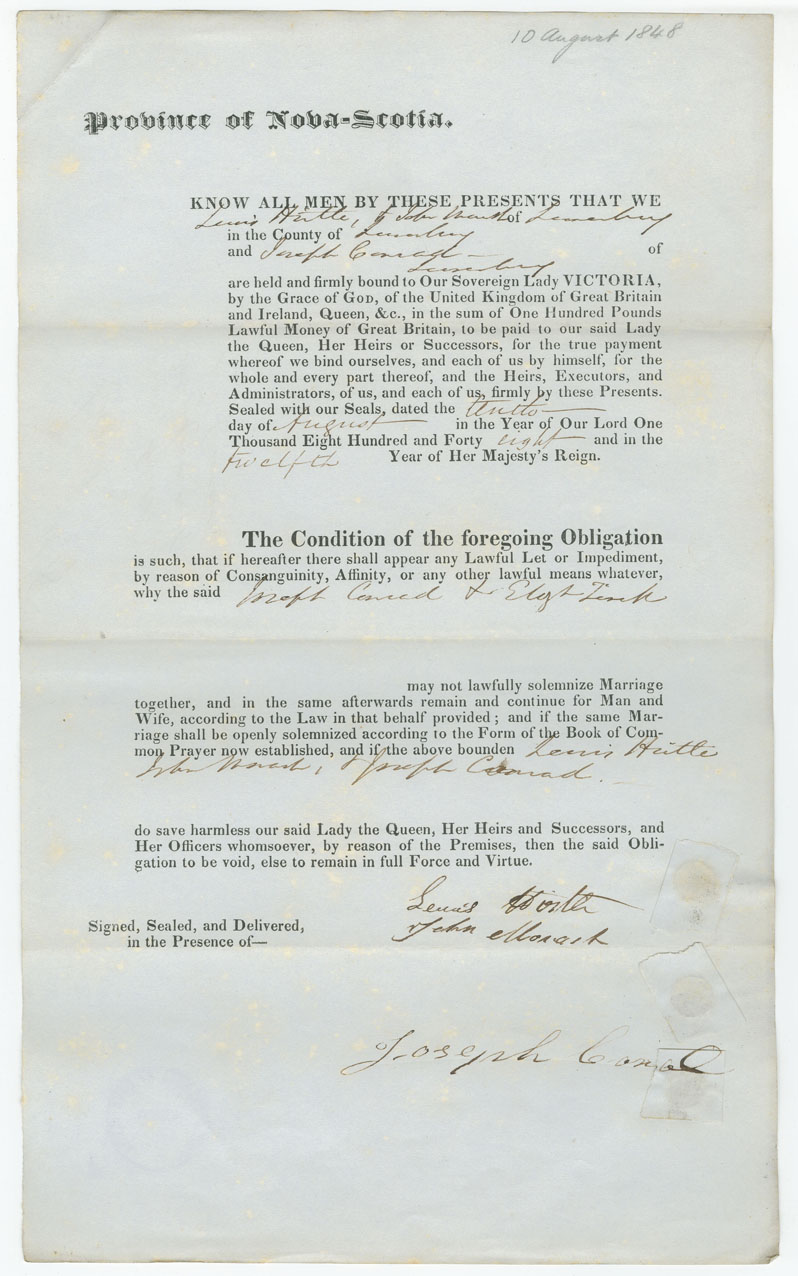 10 August 1848
Province of Nova-Scotia.
KNOW ALL MEN BY THESE PRESENTS THAT WE
Lewis Hirtle, & John of Lunenburg
in the County of Lunenburg
and Joseph Conrad — of
Lunenburg
are held and firmly bound to Our Sovereign Lady VICTORIA,
by the Grace of GOD, of the United Kingdom of Great Britain
and Ireland, Queen, &c., in the sum of One Hundred Pounds
Lawful Money of Great Britain, to be paid to our said Lady
the Queen, Her Heirs or Successors, for the true payment
whereof we bind ourselves, and each of us by himself, for the
whole and every part thereof, and the Heirs, Executors, and
Administrators, of us, and each of us, firmly by these Presents.
Sealed with our Seals, dated the
day of August in the Year of Our Lord One
Thousand Eight Hundred and Forty eight and in the
twelfth Year of Her Majesty's Reign.
The Condition of the foregoing Obligation
is such, that if hereafter there shall appear any Lawful Let or Impediment,
by reason of Consanguinity, Affinity, or any other lawful means whatever,
why the said Joseph Conrad & Elizt
may not lawfully solemnize Marriage
together, and in the same afterwards remain and continue for Man and
Wife, according to the Law in that behalf provided; and if the same Mar-
riage shall be openly solemnized according to the Form of the Book of Com-
mon Prayer now established, and if the above bounden Lewis Hirtle
John , & Joseph Conrad.
do save harmless our said Lady the Queen, Her Heirs and Successors, and
Her Officers whomsoever, by reason of the Premises, then the said Obli-
gation to be void, else to remain in full Force and Virtue.
Lewis Hirtle
Signed, Sealed, and Delivered,
John Morash
in the Presence of—
Joseph Conrad